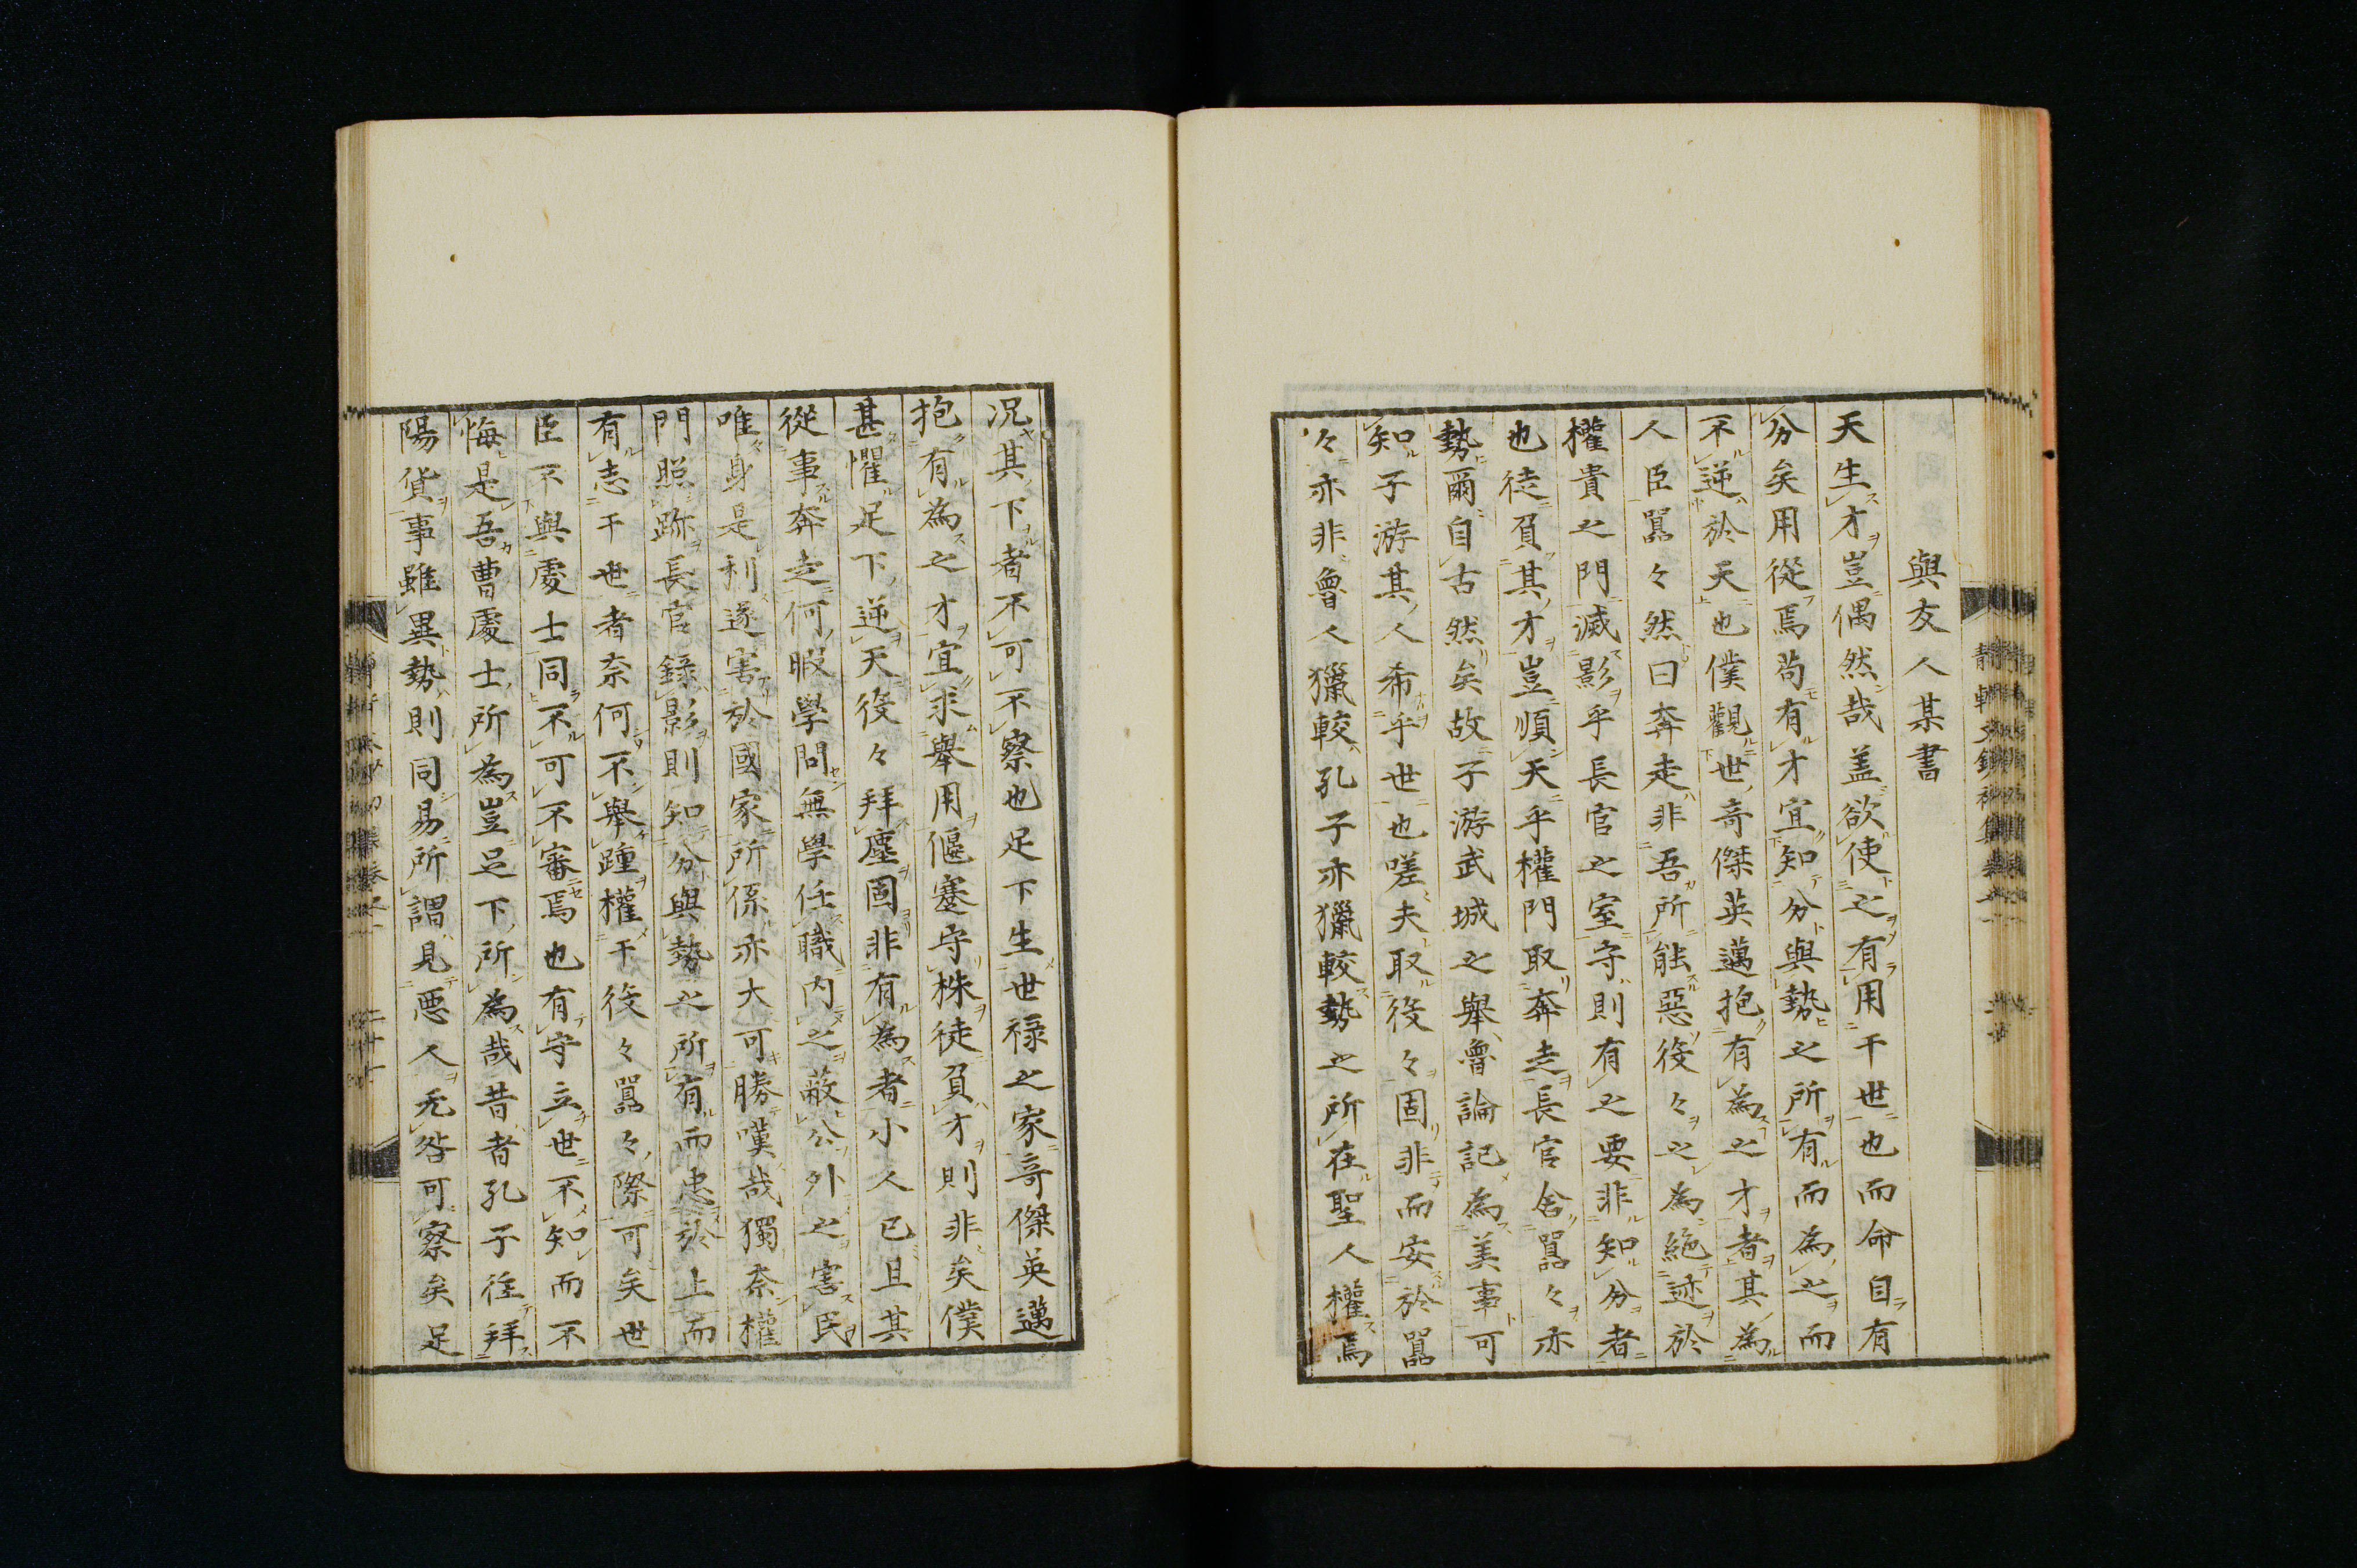 與友人某書
天生才豈偶然哉盖欲使之有用于世也而命自有
分矣用從焉苟有才宜知分與勢之所有而為之而
不逆於天也僕觀世奇傑英邁抱有為之才者其為
人臣囂々然曰奔走非吾所能惡役々之為絶迹於
權貴之門滅影乎長官之室守則有之要非知分者
也徒負其才豈順天乎權門取奔走長官舍囂々亦
勢爾自古然矣故子游武城之舉魯論記為美事可
知子游其人希乎世也嗟夫取役々固非而安於囂
々亦非魯人獵較孔子亦獵較勢之所在聖人權焉
况其下者不可不察也足下生世禄之家奇傑英邁
抱有為之才宜求舉用偃蹇守株徒負才則非矣僕
甚懼足下逆天役々拜塵固非有為者小人已且其
從事奔走何暇學問無學任職内之蔽公外之害民
唯身是利遂害於國家所係亦大可勝嘆哉獨奈權
門照跡長官録影則知分與勢之所有而忠於上而
有志于世者奈何不舉踵權于役々囂々際可矣世
臣不與處士同不可不審焉也有守立世不知而不
悔是吾曹處士所為豈足下所為哉昔者孔子徃拜
陽貨事雖異勢則同易所謂見惡人无咎可察矣足